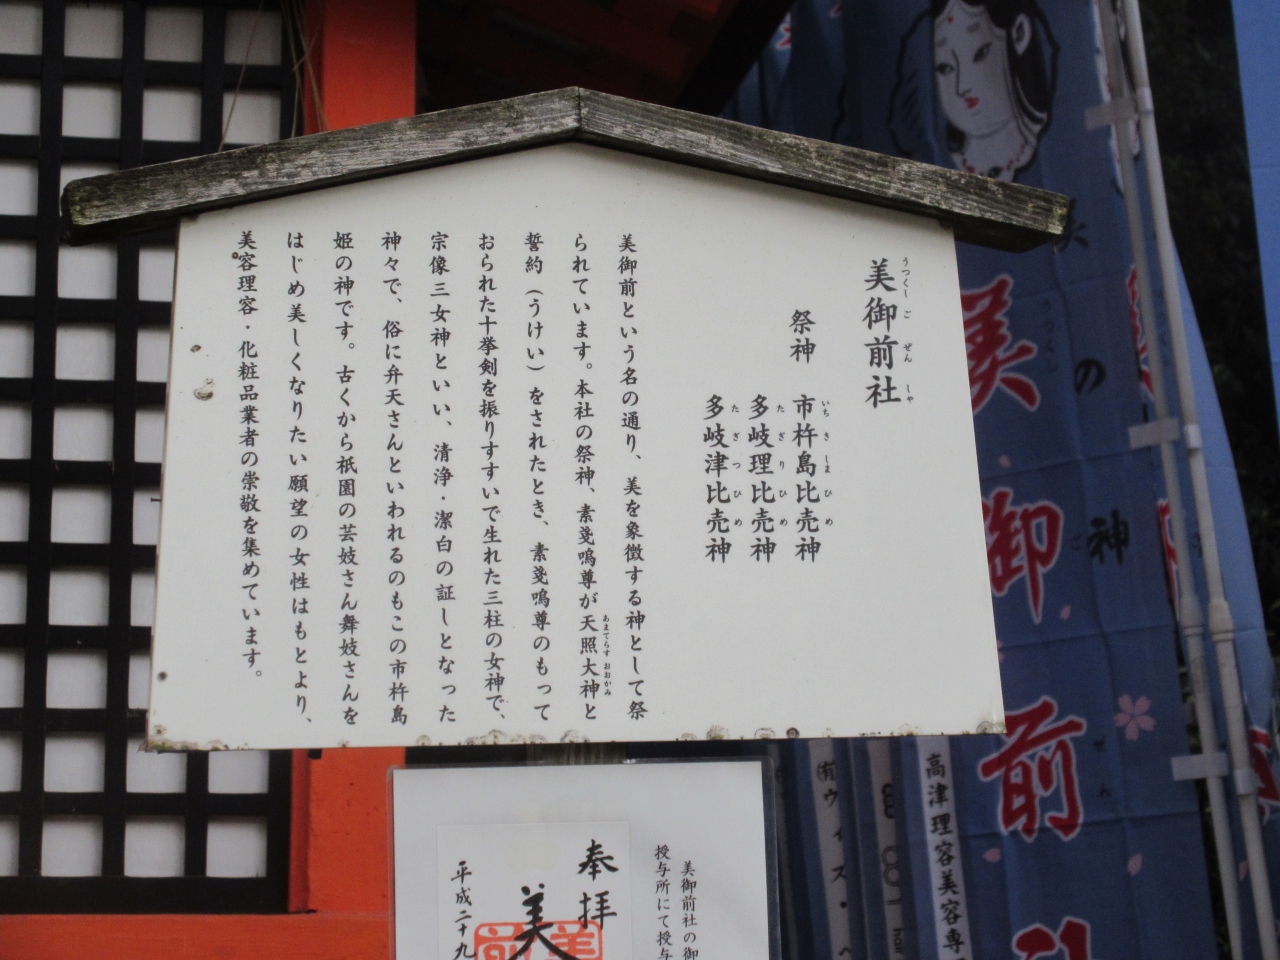 美御前社
うつくしごぜんしゃ
祭神 市杵島比売神
いちきしまひめ
多岐理比売神
たぎりひめ
多岐津比売神
たぎつひめ
美御前という名の通り、美を象徴する神として祭
られています。本社の祭神、素戔嗚尊が天照大神と
あまてらすおおかみ
誓約（うけい）をされたとき、素戔嗚尊のもって
おられた十挙剣を振りすすいで生れた三柱の女神で、
宗像三女神といい、清浄・潔白の証しとなった
神々で、俗に弁天さんといわれるのもこの市杵島
姫の神です。古くから祇園の芸妓さん舞妓さんを
はじめ美しくなりたい願望の女性はもとより、
美容理容・化粧品業者の崇敬を集めています。
の神
美御前
うつくし
ご
ぜん
高津理容美容専
(有)ウィス・
hair
美御前社の御
授与所にて授与
奉拝
美
平成二十九